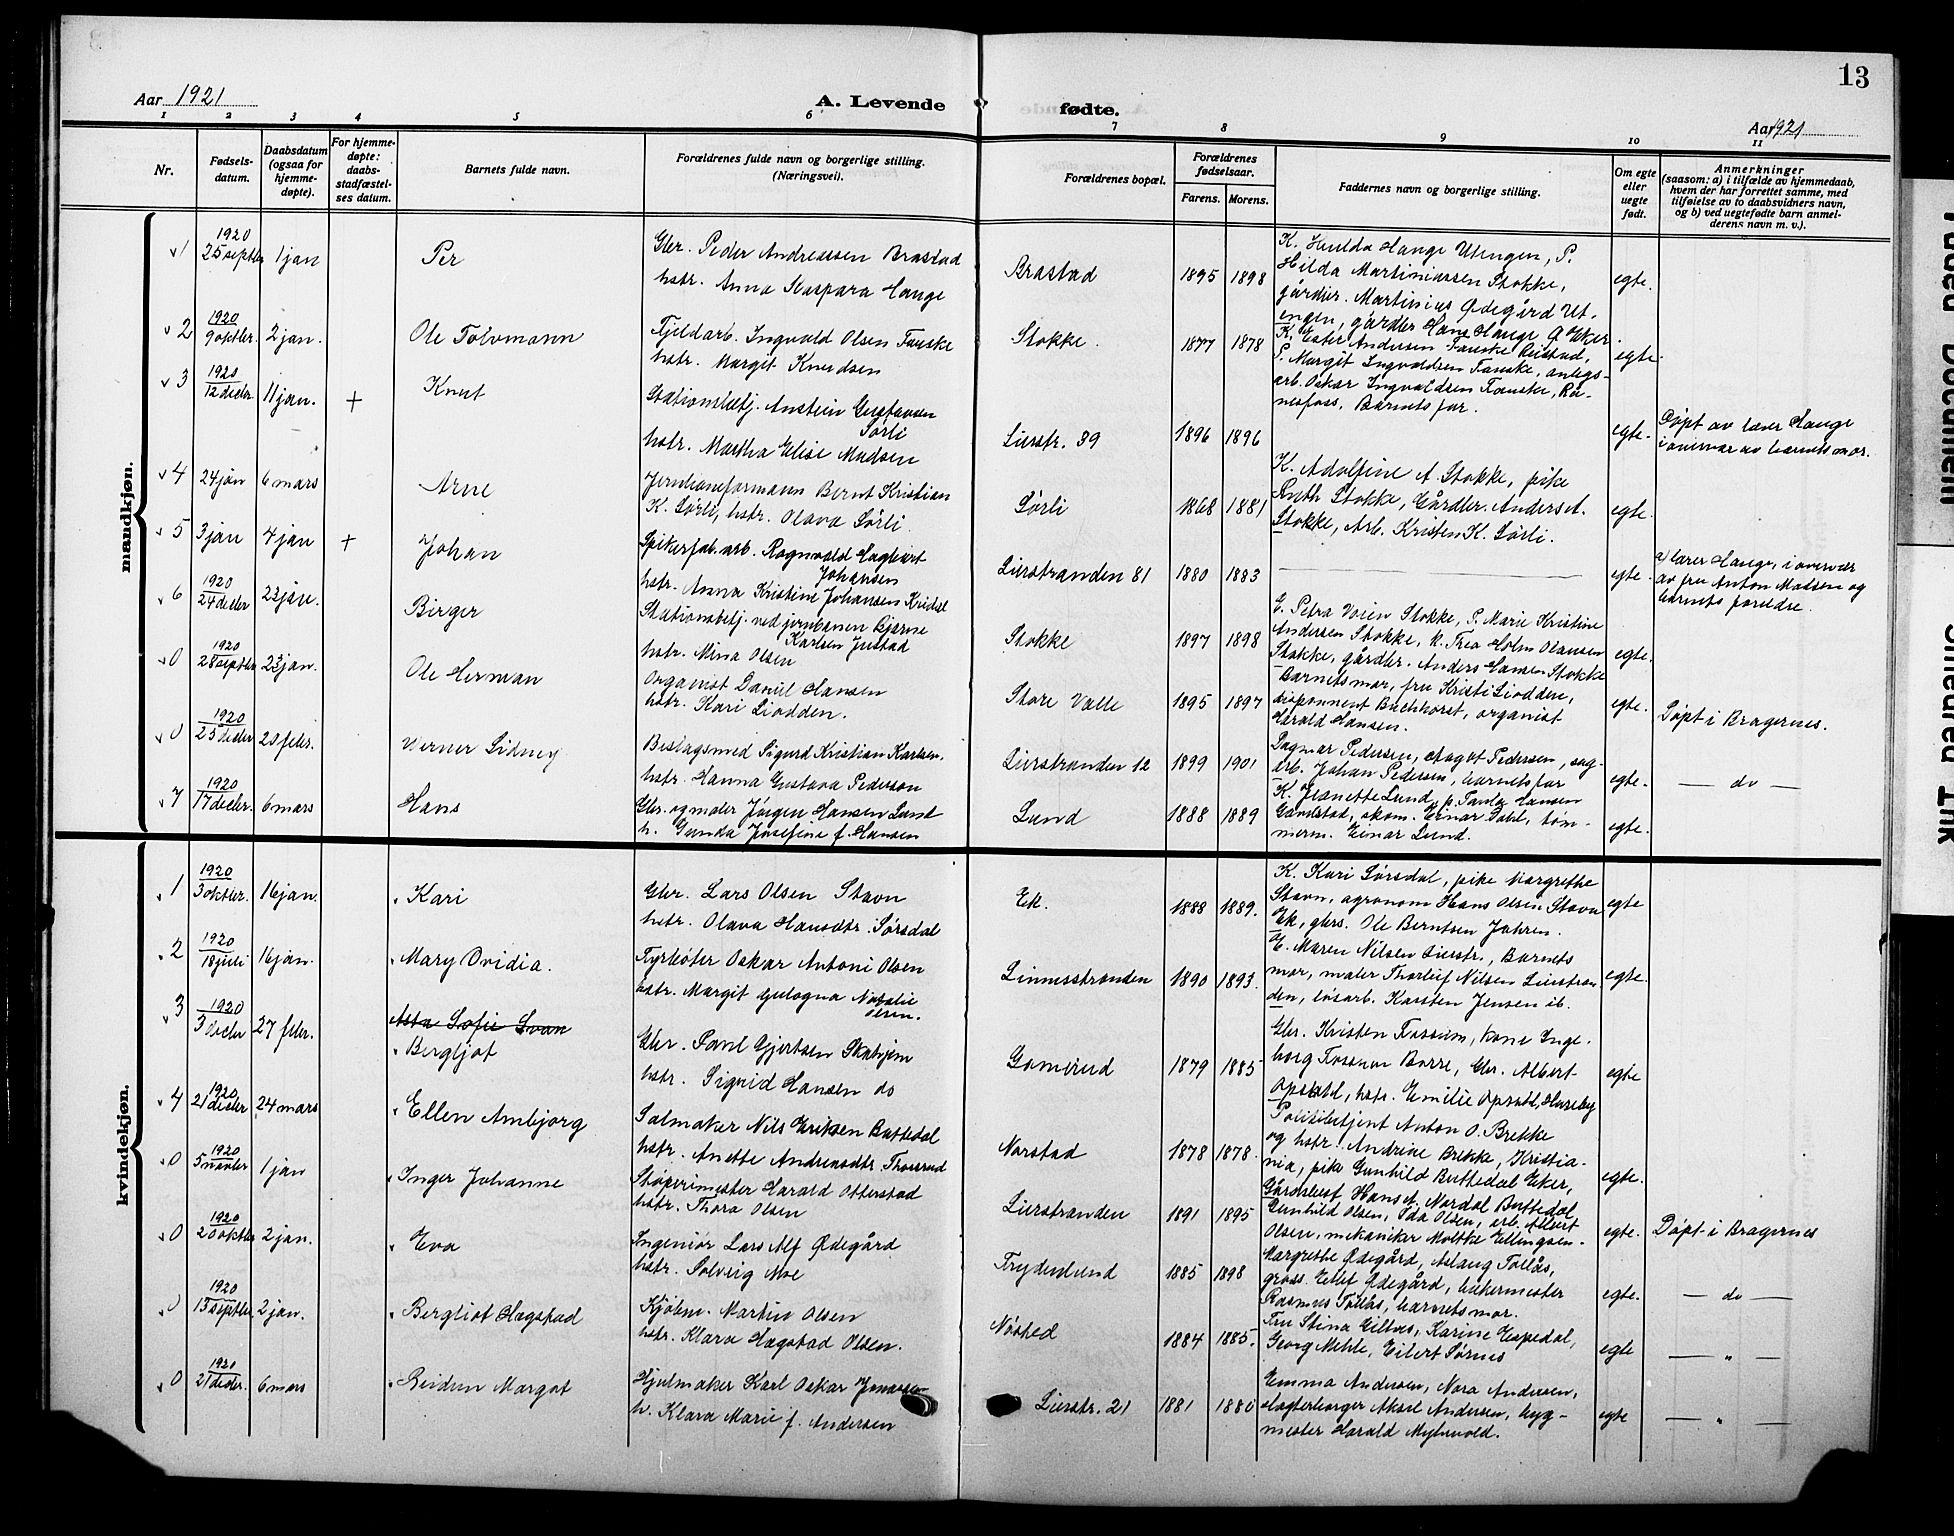 13
Aar 1921
A. Levende
fødte.
Aar 1921
1 2 3 4 5 6 7 8 9 10 11
Nr.
Fødsels-
datum.
Daabsdatum
(ogsaa for
hjemme-
døpte).
For hjemme-
døpte:
daabs-
stadfæstel-
ses datum.
Barnets fulde navn.
Forældrenes fulde navn og borgerlige stilling.
(Næringsvei).
Forældrenes bopæl.
Forældrenes
fødselsaar.
Farens. Morens.
Faddernes navn og borgerlige stilling.
Om egte
eller
uegte
født.
Anmerkninger
(saasom: a) i tilfælde av hjemmedaab,
hvem der har forrettet samme, med
tilføielse av to daabsvidners navn,
og b) ved uegtefødte barn anmel-
derens navn m. v.).
mandkjøn.
1 1920 25 septbr 1 jan Per
Gbr. Peder Andreassen Brastad
hstr. Anna Kaspara Hauge
Brastad 1895 1898
K. Hulda Hauge Utengen, P.
Hilda Martiniussen Stokke,
gårdbr. Martinius Ødegård Ut-
engen, gårdbr Hans Hauge Ø Eker.
egte.
2 1920 9 oktbr. 2 jan. Ole Tolvmann
Fjeldarb. Ingvald Olsen Fauske
hstr. Margit Knudsen
Stokke. 1877 1878
K. Ester Andersen Fauske Reistad,
P. Margit Ingvaldsen Fauske, anlegs-
arb. Oskar Ingvaldsen Fauske, Rå-
nesfoss, Barnets far.
egte.
3 1920 12 decbr. 11 jan. + Knut
Stationsbetj. Anstein Gustavsen
Sørli
hstr. Martha Elise Madsen
Lierstr. 39 1896 1896 egte.
Døpt av lærer Hauge
i overvær av barnets mor.
4 24 jan 6 mars Arne
Jernbaneformann Bernt Kristian
K. Sørli, hstr. Olava Sørli.
Sørli 1868 1881
K. Adolfine A. Stokke, pike
Ruth Stokke, Gårdbr. Anders A.
Stokke, Arb. Kristen K. Sørli.
egte.
5 3 jan 4 jan + Johan
Spikerfab. arb. Ragnvald Hagbart
Johansen
hstr. Anna Kristine Johansen
Lierstranden 81 1880 1883 — egte.
a) lærer Hauge, i overvær
av fru Anton Madsen og
barnets foreldre.
6 1920 24 decbr 23 jan. Birger
Stationsbetj. ved jernbanen Bjarne
Karlsen Justad
hstr. Mina Olsen
Stokke 1897 1898
E. Petra Voien Stokke, P. Marie Kristine
Andersen Stokke, K. Trea Holm Olausen
Stokke, gårdbr. Anders Hansen Stokke
egte.
0 1920 28 septbr 23 jan. Ole Herman
Organist Daniel Hansen
hstr. Kari Liodden.
Store Valle 1895 1897
Barnets mor, fru Kristi Liodden,
disponent Buchhorst, organist
Harald Hansen.
egte.
Døpt i Bragernes.
0 1920 25 decbr 20 febr. Werner Sidney
Beslagsmed Sigurd Kristian Karlsen.
hstr. Hanna Gustava Pederson
Lierstranden 12 1899 1901
Dagmar Pedersen, Aagot Pedersen, sag-
arb. Johan Pedersen, barnets far
egte.
— do —
7 1920 17 decbr. 6 mars Hans
Gbr. og maler Jørgen Hansen Lund
h. Gunda Josefine f. Hansen
Lund 1888 1889
K. Jeanette Lund, p. Paula Hansen
Grandstad, skom. Einar Dahl, tøm-
merm. Einar Lund.
egte.
kvindekjøn.
1 1920 3 oktbr. 16 jan. Kari
Gbr. Lars Olsen Stavn
hstr. Olava Hansdtr. Sørsdal
Ek. 1888 1889.
K. Kari Sørsdal, pike Margrethe
Stavn, agronom Hans Olsen Stavn
Ek, gbrs. Ole Berntsen Jahren.
egte
2 1920 18 juli 16 jan. Mary Ovidia.
Fyrbøter Oskar Antoni Olsen
hstr. Margit Gulogna Natalie
Olsen.
Linnesstranden 1890 1893.
E. Maren Nilsen Lierstr., Barnets
mor, maler Thorleif Nilsen Lierstran
den, løsarb. Karsten Jensen ib.
egte.
3 1920 3 decbr 27 febr. Asta Sofie Svan
Bergljot
Gbr. Paul Gjertsen
hstr. Sigrid Hansen do
Gamerud 1879 1885
Gbr. Kristen Fossum, kone Inge-
borg Fossum Borre, Gbr. Albert
Opsahl, hstr. Emilie Opsahl, Huseby
egte
4 1920 21 decbr 24 mars Ellen Ambjørg
Salmaker Nils Eriksen Buttedal
hstr. Anette Andreasdtr. Thorsrud
Narstad 1878 1878.
Politibetjent Anton O. Brekke
og hstr. Andrine Brekke, Kristia-
nia, pike Gunhild Buttedal Eker,
Gårdsbest. Hans A. Nordal Buttedal
egte.
0 1920 5 novbr 1 jan Inger Johanne
Støperimester Harald Otterstad
hstr. Thora Olsen
Lierstranden 1891 1895
Gunhild Olsen, Ida Olsen, arb. Albert
Olsen, mekaniker Moltke Ellingsen.
egte.
Døpt i Bragernes
0 1920 20 oktbr 2 jan. Eva
Ingeniør Lars Alf Ødegård
hstr. Solveig Moe
Frydenlund 1885 1898
Margrethe Ødegård, Aslaug Tollås,
gross. Eilef Ødegård, bakermester
Rasmus Tollås, barnets mor.
egte.
— do —
0 1920 13 septbr 2 jan. Bergliot Hægstad
Kjøbm. Martin Olsen
hstr. Klara Hægstad Olsen.
Nøsted 1884 1885.
Fru Stina Eilbas, Karine Espedal,
Georg Mehle, Eilert Sørnes
egte
— " —
0 1920 21 decbr. 6 mars Reidun Margot
Hjulmaker Karl Oskar Jonassen
h. Klara Marie f. Andersen
Lierstr. 21 1881 1880
Emma Andersen, Nora Andersen,
Aksel Andersen, byg-
mester Harald Myhrvold.
egte
— " —